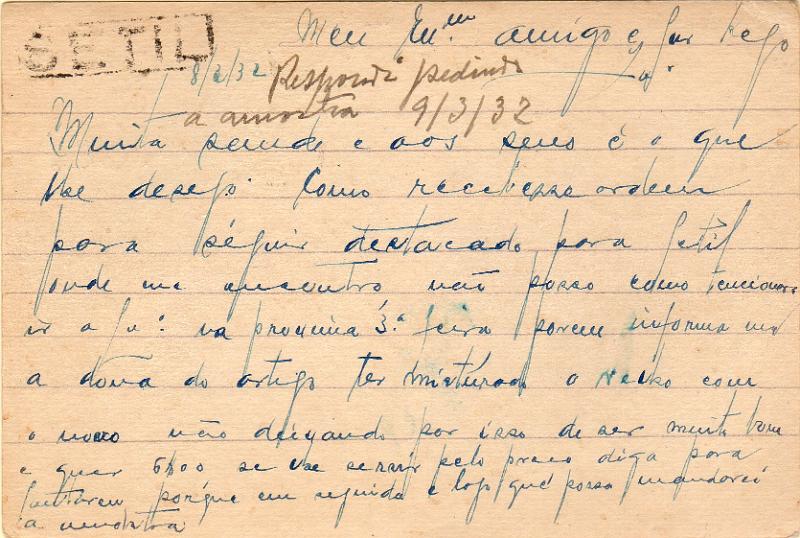 SETIL
Meu Exmo amigo e Snr Rego
8/2/32 Respondi pedindo
a amostra 9/3/32
Muita saude e aos seus é o que
lhe desejo Como recebesse ordem
para séguir destacado para Setil
onde me encontro não posso como tencionava
ir a na proquima 3.ª feira porem informa me
a dona do artigo ter misturado o velho com
o novo não deixando por isso de ser muito bom
e quer 6h00 se lhe servir pelo preco diga para
porque em seguida e logo qué possa mandarei
a amostra